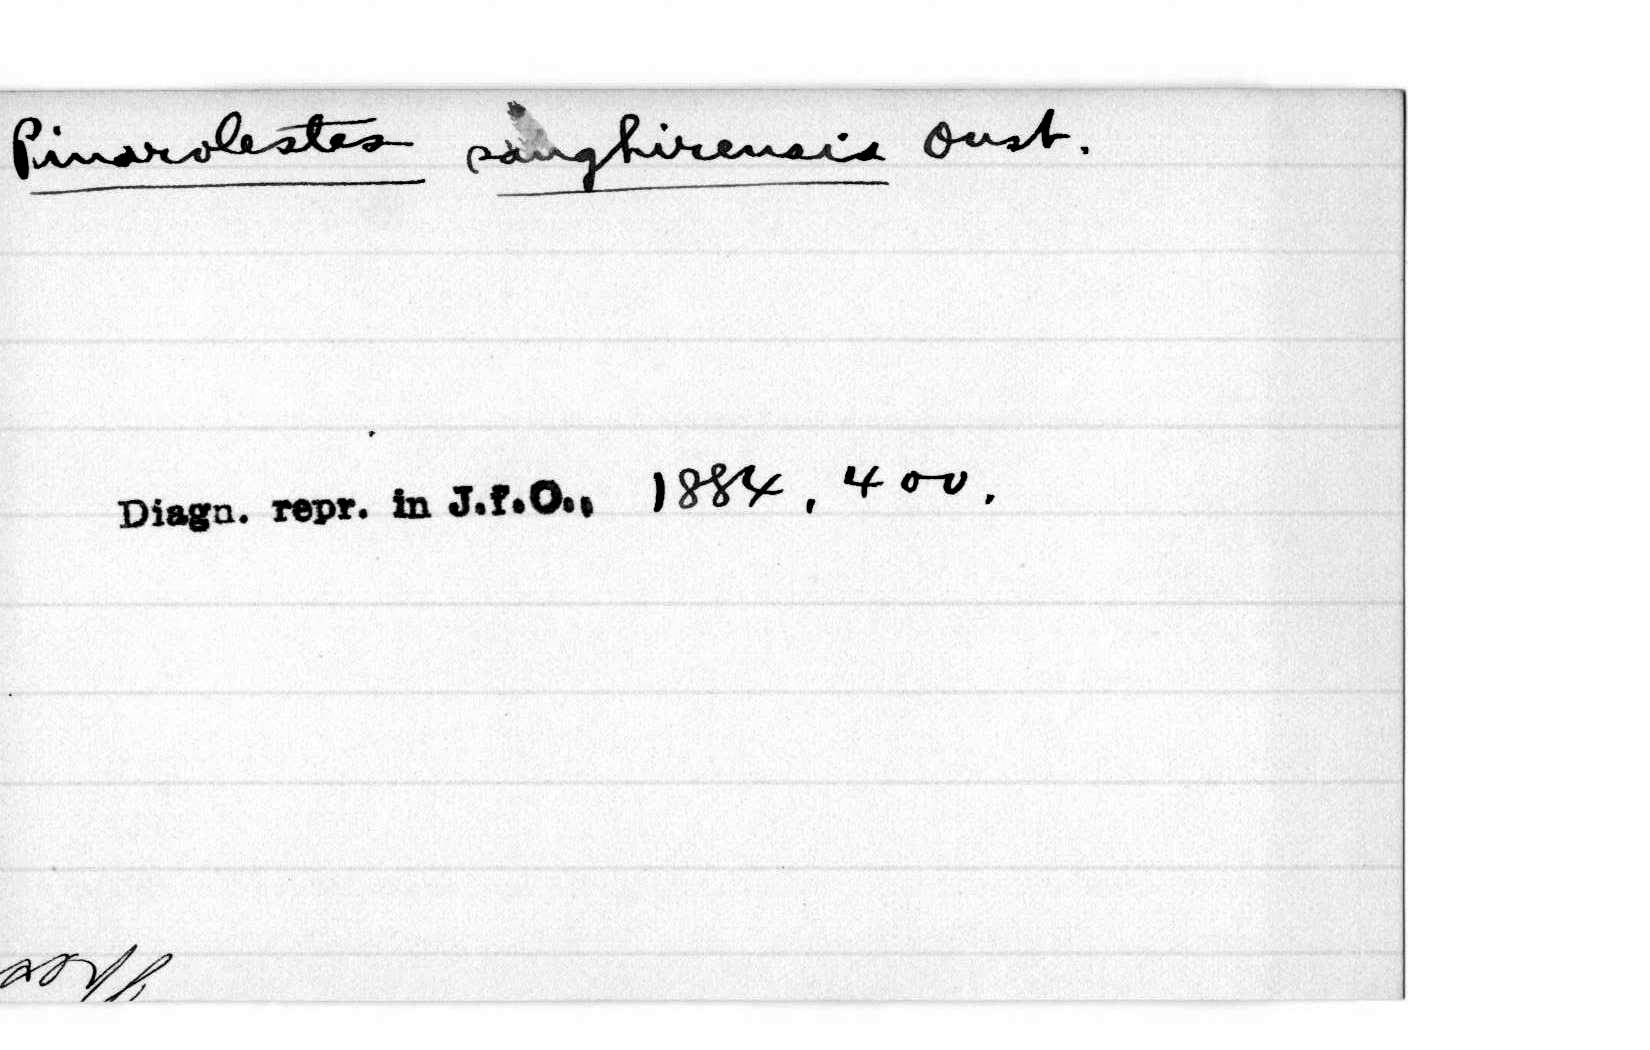 Pinarolestes sanghirensis Oust.
Diagn. repr. in J.f.O., 1884, 400.